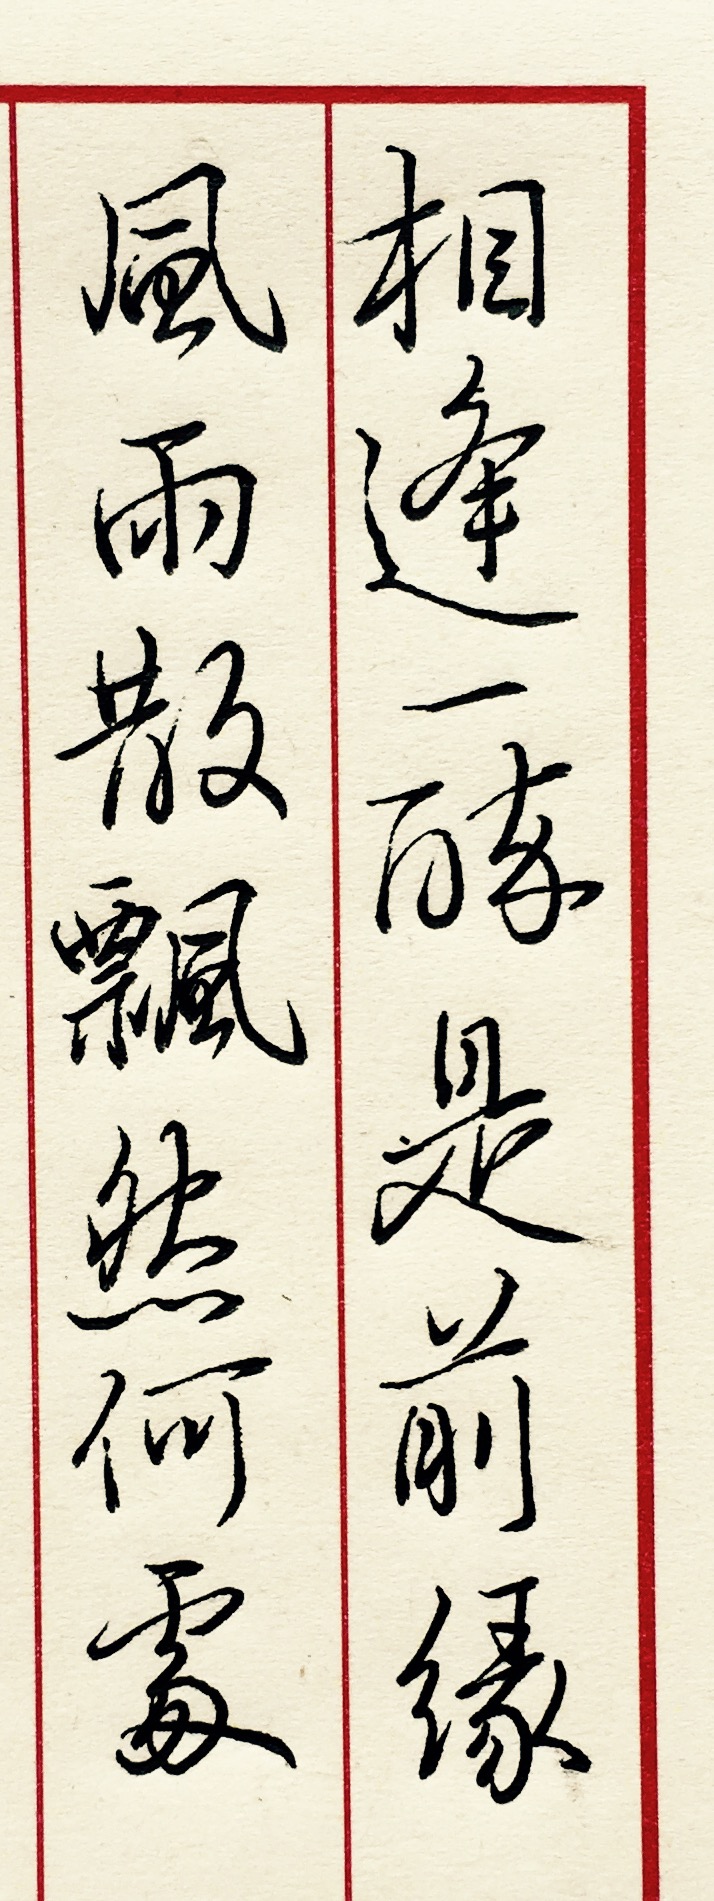 相逢一醉是前緣
風雨散飄然何處